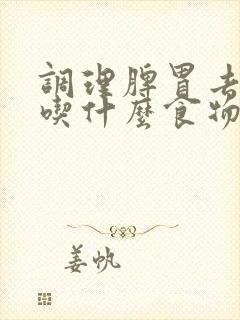 調理脾胃去
喫什麼食物
姜帆